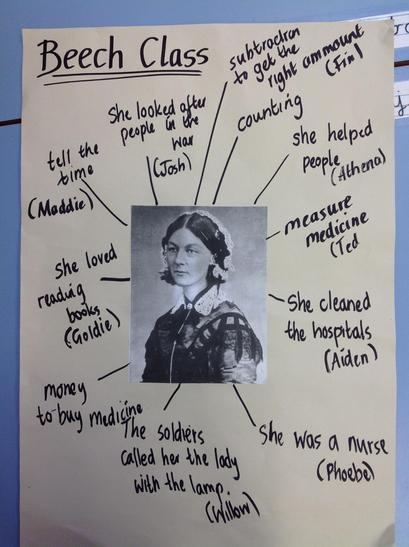 Beech Class
subtraction
to get the
right ammount
(Fin)
counting
She looked after
people in the
war
(Josh)
tell the
time
(Maddie)
she helped
people
(Athena)
measure
medicine
(Ted
She loved
reading
books
(Goldie)
She cleaned
the hospitals
(Aiden)
money
to buy medicine
The soldiers
called her the lady
with the lamp.
(Willow)
She was a nurse
(Phoebe)